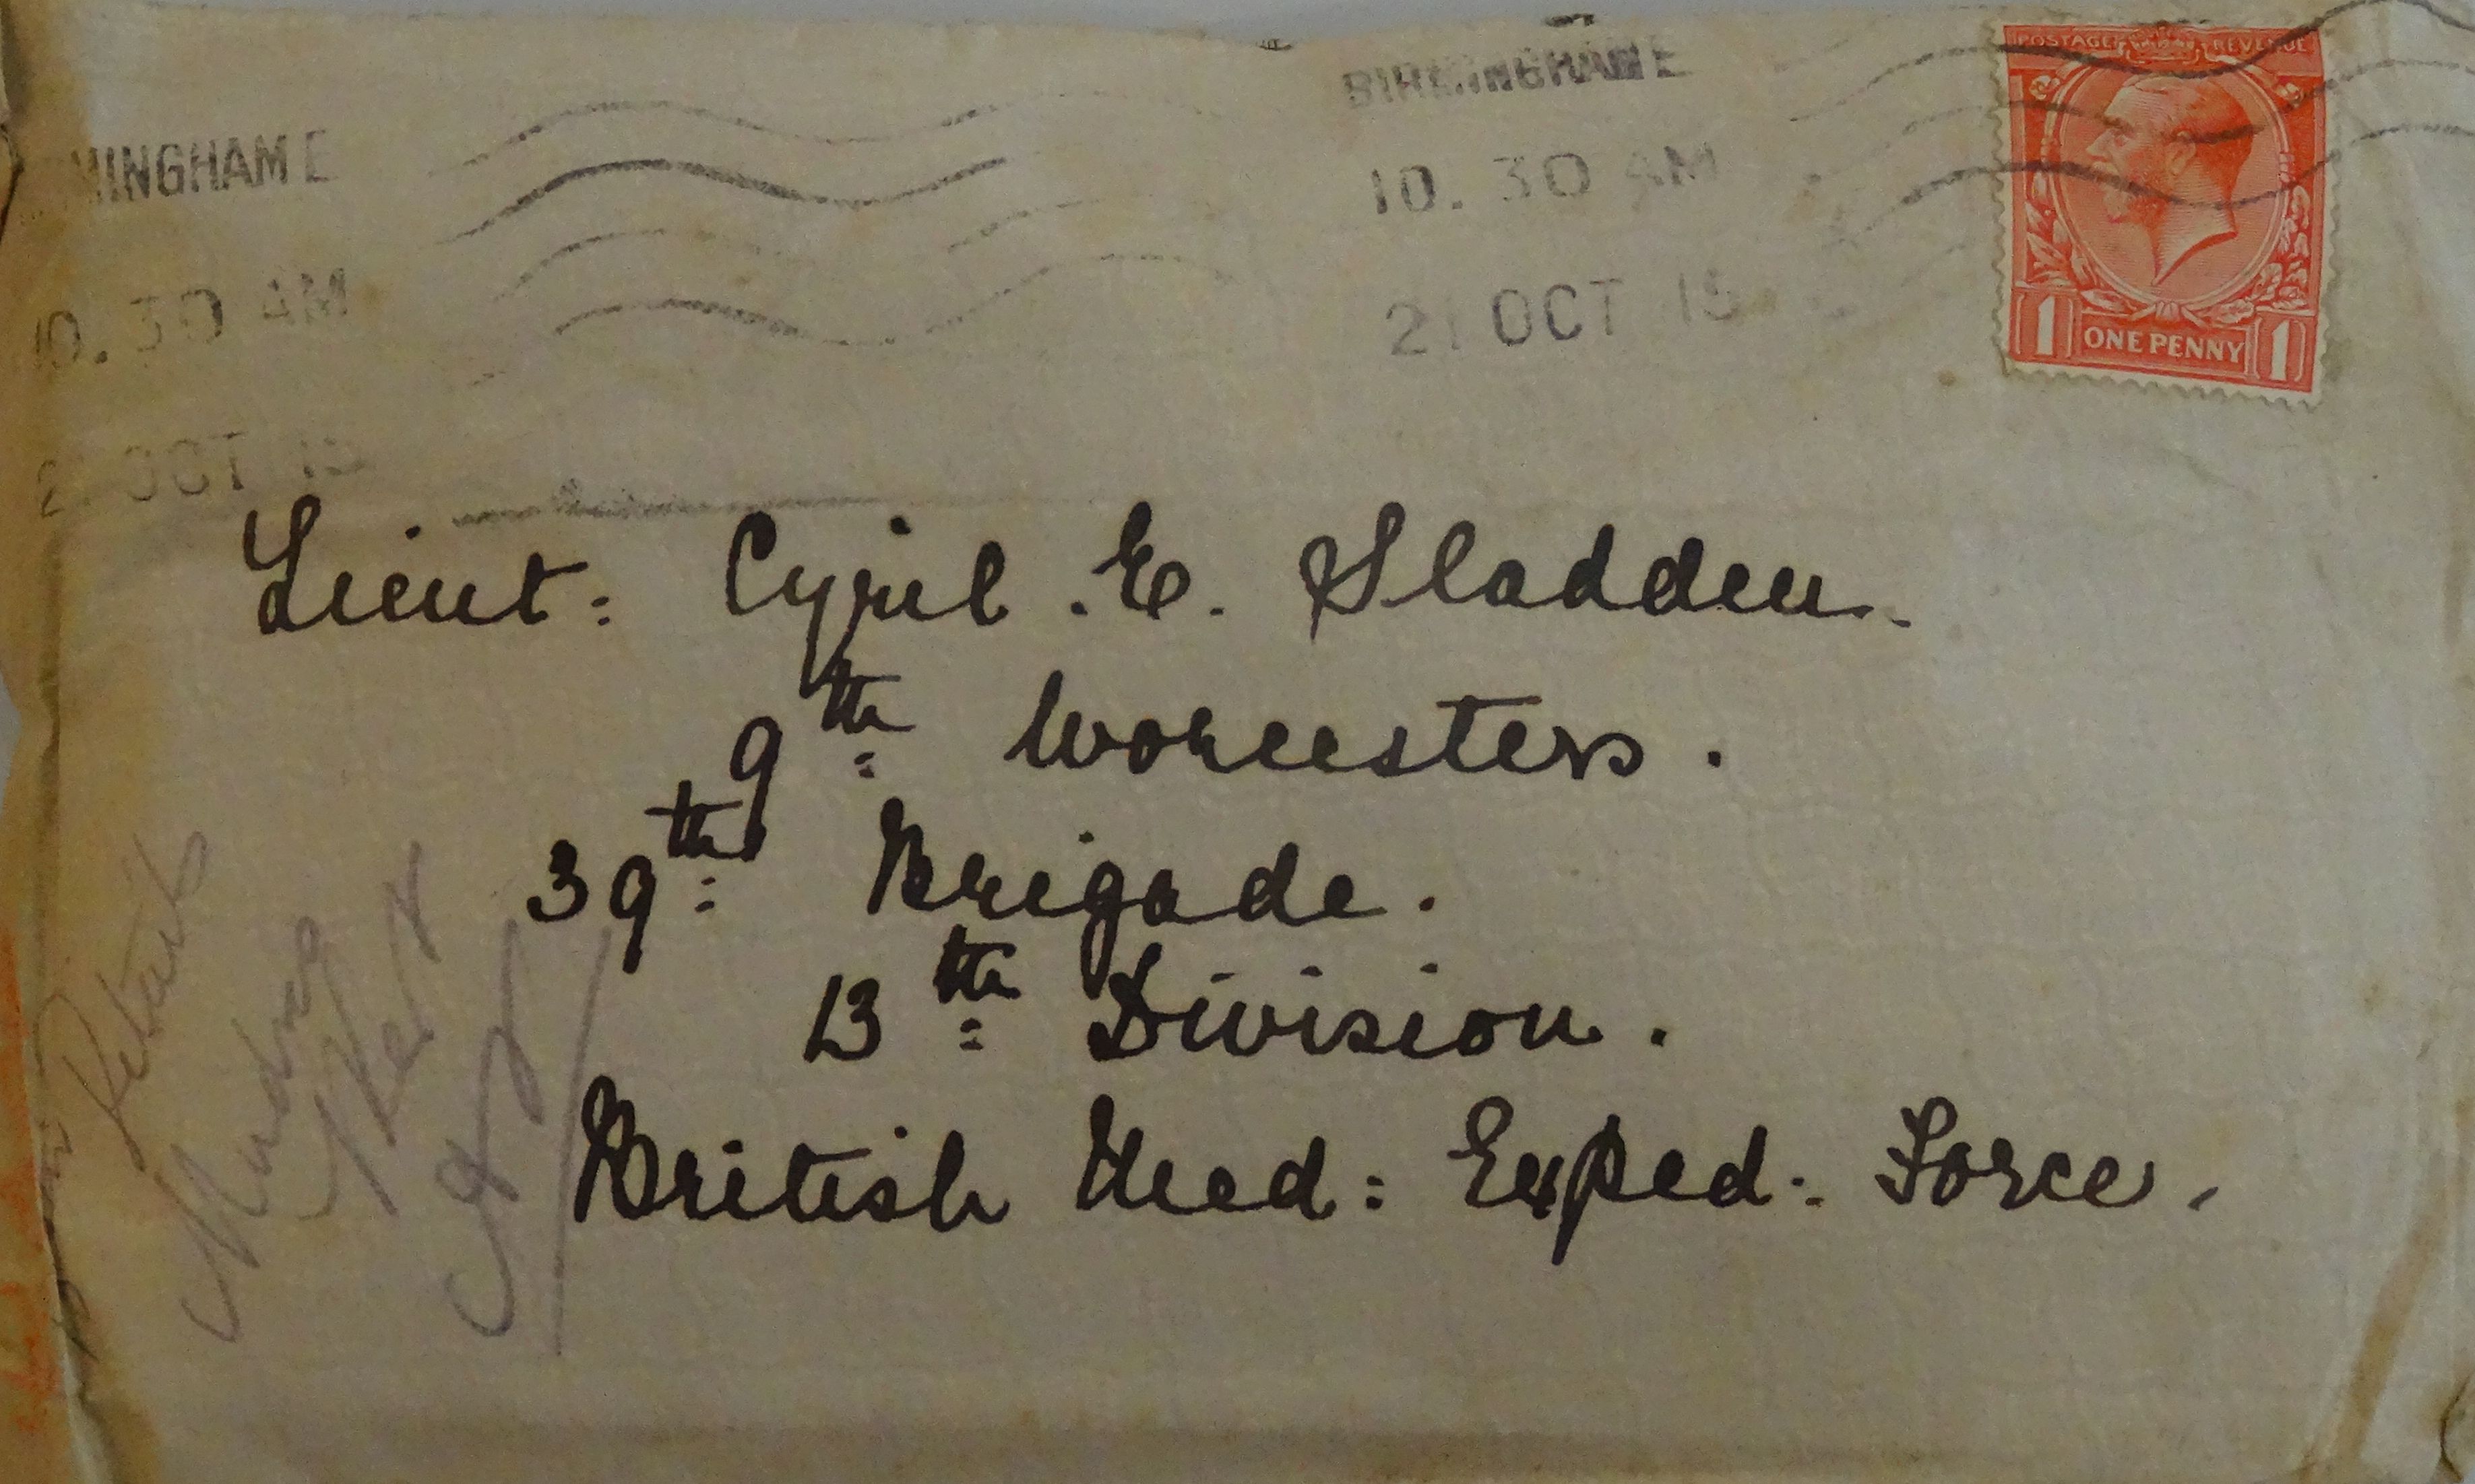 BIRMINGHAM E
10. 30 AM
21 OCT 15
POSTAGE REVENUE
1 ONE PENNY 1
MINGHAM E
10. 30 AM
2 OCT 15
Lieut: Cyril . E. Sladden.
9th Worcesters.
39th Brigade.
13th Division.
British Med: Exped: Force.